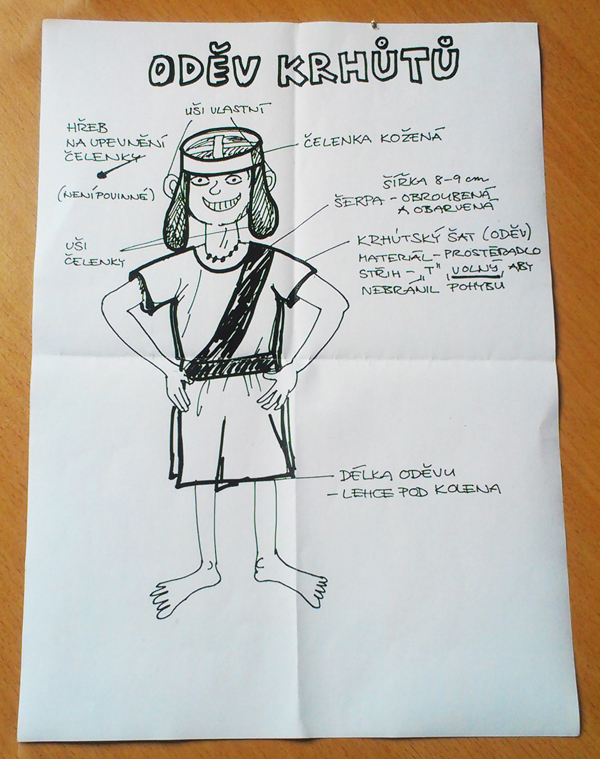 ODĚV KRHŮTŮ
UŠI VLASTNÍ
HŘEB
NA UPEVNĚNÍ
ČELENKY
(NENÍ POVINNÉ)
ČELENKA KOŽENÁ
ŠÍŘKA 8-9 cm
ŠERPA - OBROUBENÁ
A OBARVENÁ
UŠI
ČELENKY
KRHŮTSKÝ ŠAT (ODĚV)
MATERIÁL - PROSTĚRADLO
STŘIH - „T", VOLNÝ, ABY
NEBRÁNIL POHYBU
DÉLKA ODĚVU
- LEHCE POD KOLENA